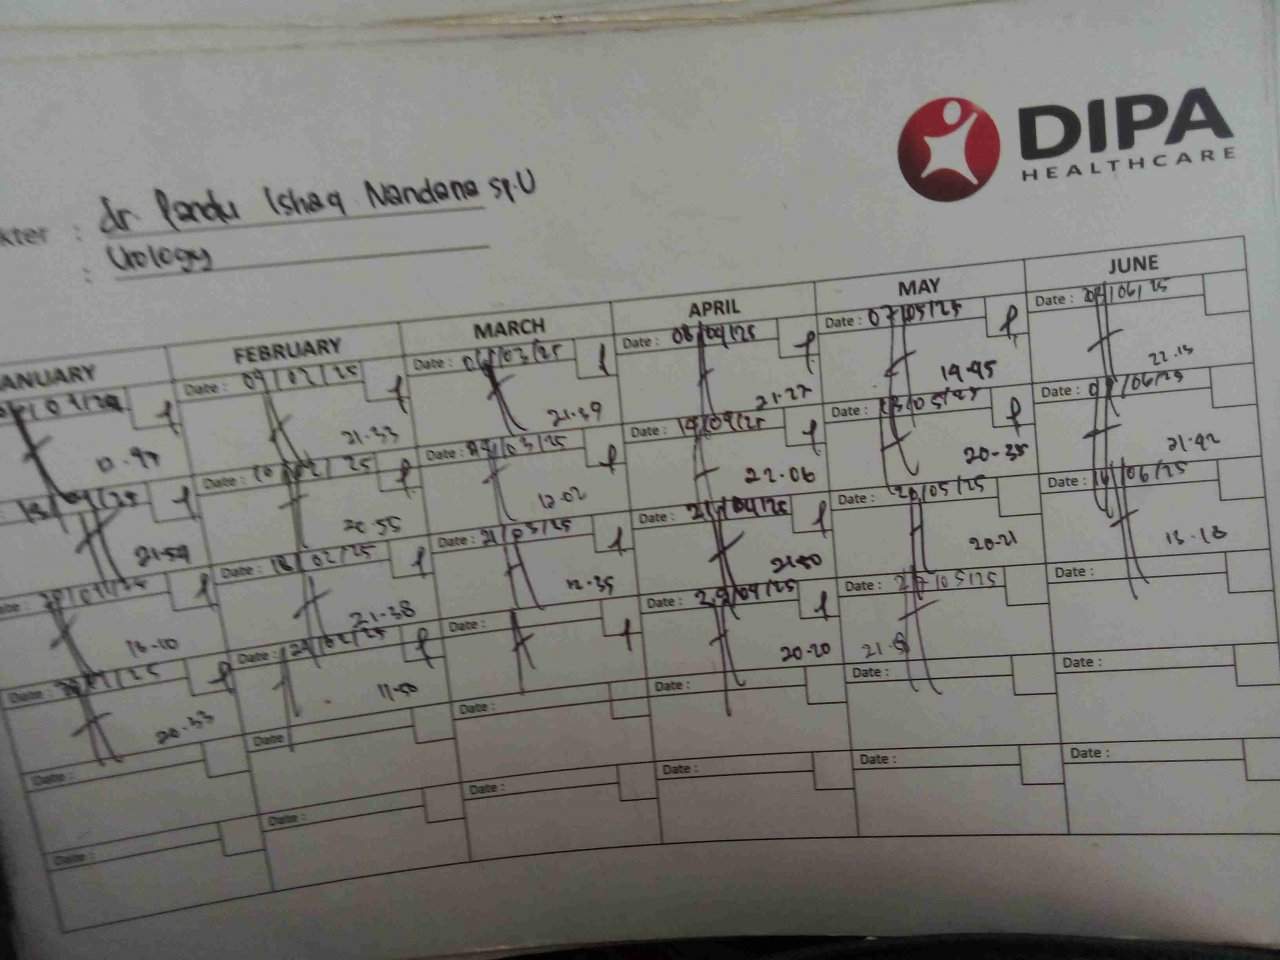 DIPA
HEALTHCARE
kter : dr. Pandu Ishaq Nandana Sp.U
: Urology
ANUARY FEBRUARY MARCH APRIL MAY JUNE
Date : 09/02/25 Date : /03/25 Date : 08/04/25 Date : 07/05/25 Date : /06/25
21-33 21-39 21-27 19-45 22.13
Date : 10/02/25 Date : /03/25 Date : 14/04/25 Date : 13/05/25 Date : /06/25
21-54 20-55 12-02 22-06 20-35 21-42
Date : 18/02/25 Date : 21/03/25 Date : 21/04/25 Date : 20/05/25 Date : /06/25
18-10 21-38 12-35 21-50 20-21 13-18
Date : Date : 24/02/25 Date : Date : 29/04/25 Date : 27/05/25 Date :
20-33 11-50 20-20
Date : Date : Date : Date : Date : Date :
Date : Date : Date : Date : Date : Date :